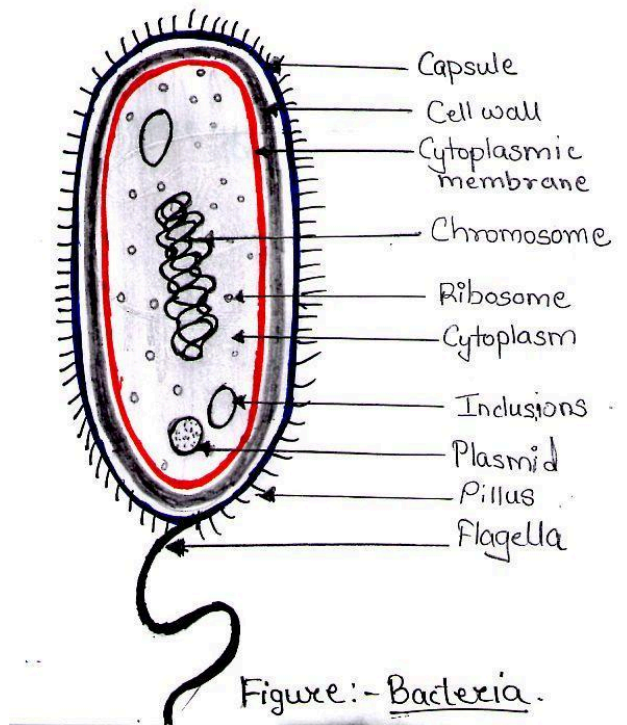 Capsule
Cell wall
Cytoplasmic
membrane
Chromosome
Ribosome
Cytoplasm
Inclusions
Plasmid
Pillus
Flagella
Figure:- Bacteria.